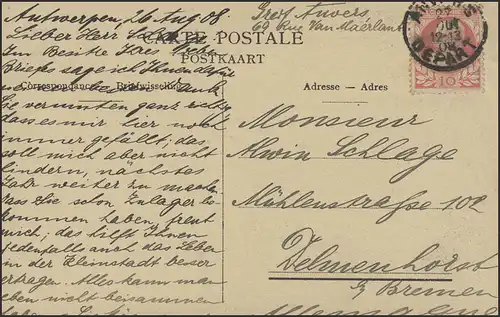 Antwerpen, 26 Aug 08.
Lieber Herr
Im Besitze Ihres
Briefes sage ich Ihnen dafür
vermuten ganz richtig
dass es mir hier noch
immer gefällt; das
soll mich aber nicht
hindern, nächstes
Jahr weiter zu machen
Dass Sie schon Zulager be-
kommen haben, freut
mich; das hilft Ihnen
jedenfalls auch das Leben
in der Kleinstadt besser
ertragen. Alles kann man
eben nicht beisammen
haben.
Greif Anvers
69 Rue Van Maerlant
CARTE POSTALE
POSTKAART
Correspondance Briefwisseling
Adresse – Adres
27
12-13
08
DEPART
10
Monsieur
Alwin Schlage
Mühlenstrasse 102
Delmenhorst
b/ Bremen
Allemagne